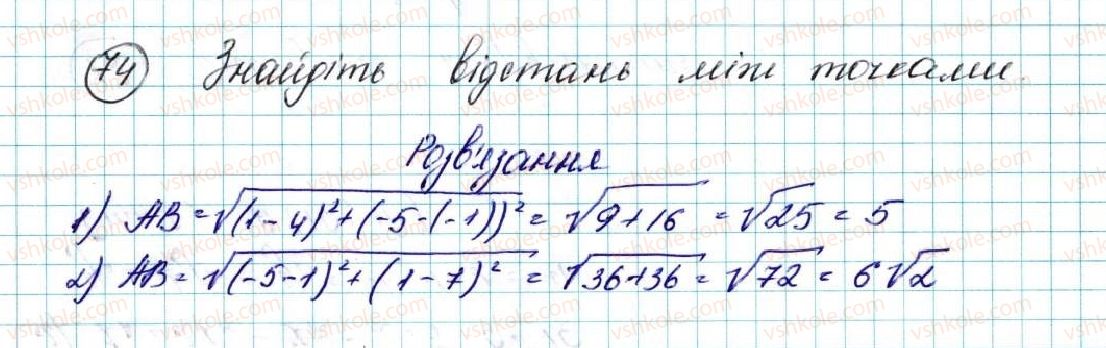 74 Знайдіть відстань між точками.
Розв'язання
1) AB = √((1-4)²+(-5-(-1))²) = √(9+16) = √25 = 5
2) AB = √((-5-1)²+(1-7)²) = √(36+36) = √72 = 6√2